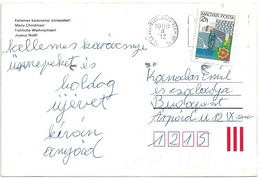 Kellemes karácsonyi ünnepeket!
Merry Christmas!
Fröhliche Weihnachten!
Joyeux Noël!
MAGYAR POSTA
2Ft
kellemes karácsonyi
ünnepeket és
boldog
újévet
kíván
anyóid
Kanalas Emil
és családja
Budapest
Árpád u 12 IX em
1215